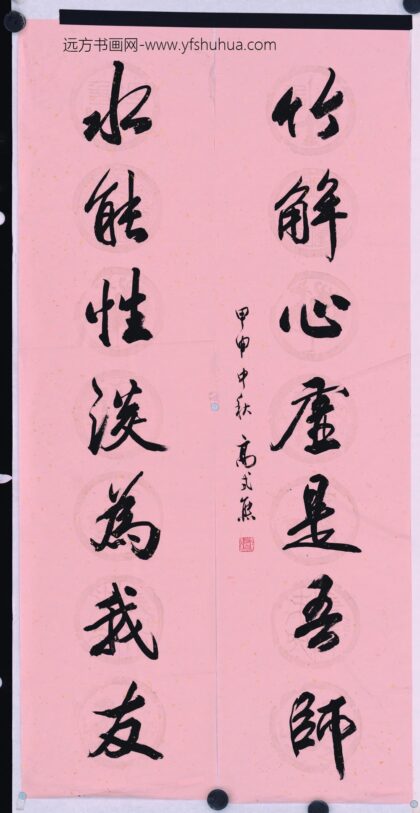 远方书画网-www.yfshuhua.com
竹解心虚是吾師
水能性淡為我友
甲申中秋 高式熊